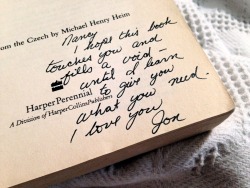 rom the Czech by Michael Henry Heim
Nancy
I hope this book
touches you and
fills a void—
until I learn
to give you
what you need.
I love you
Jon
HarperPerennial
A Division of HarperCollinsPublishers